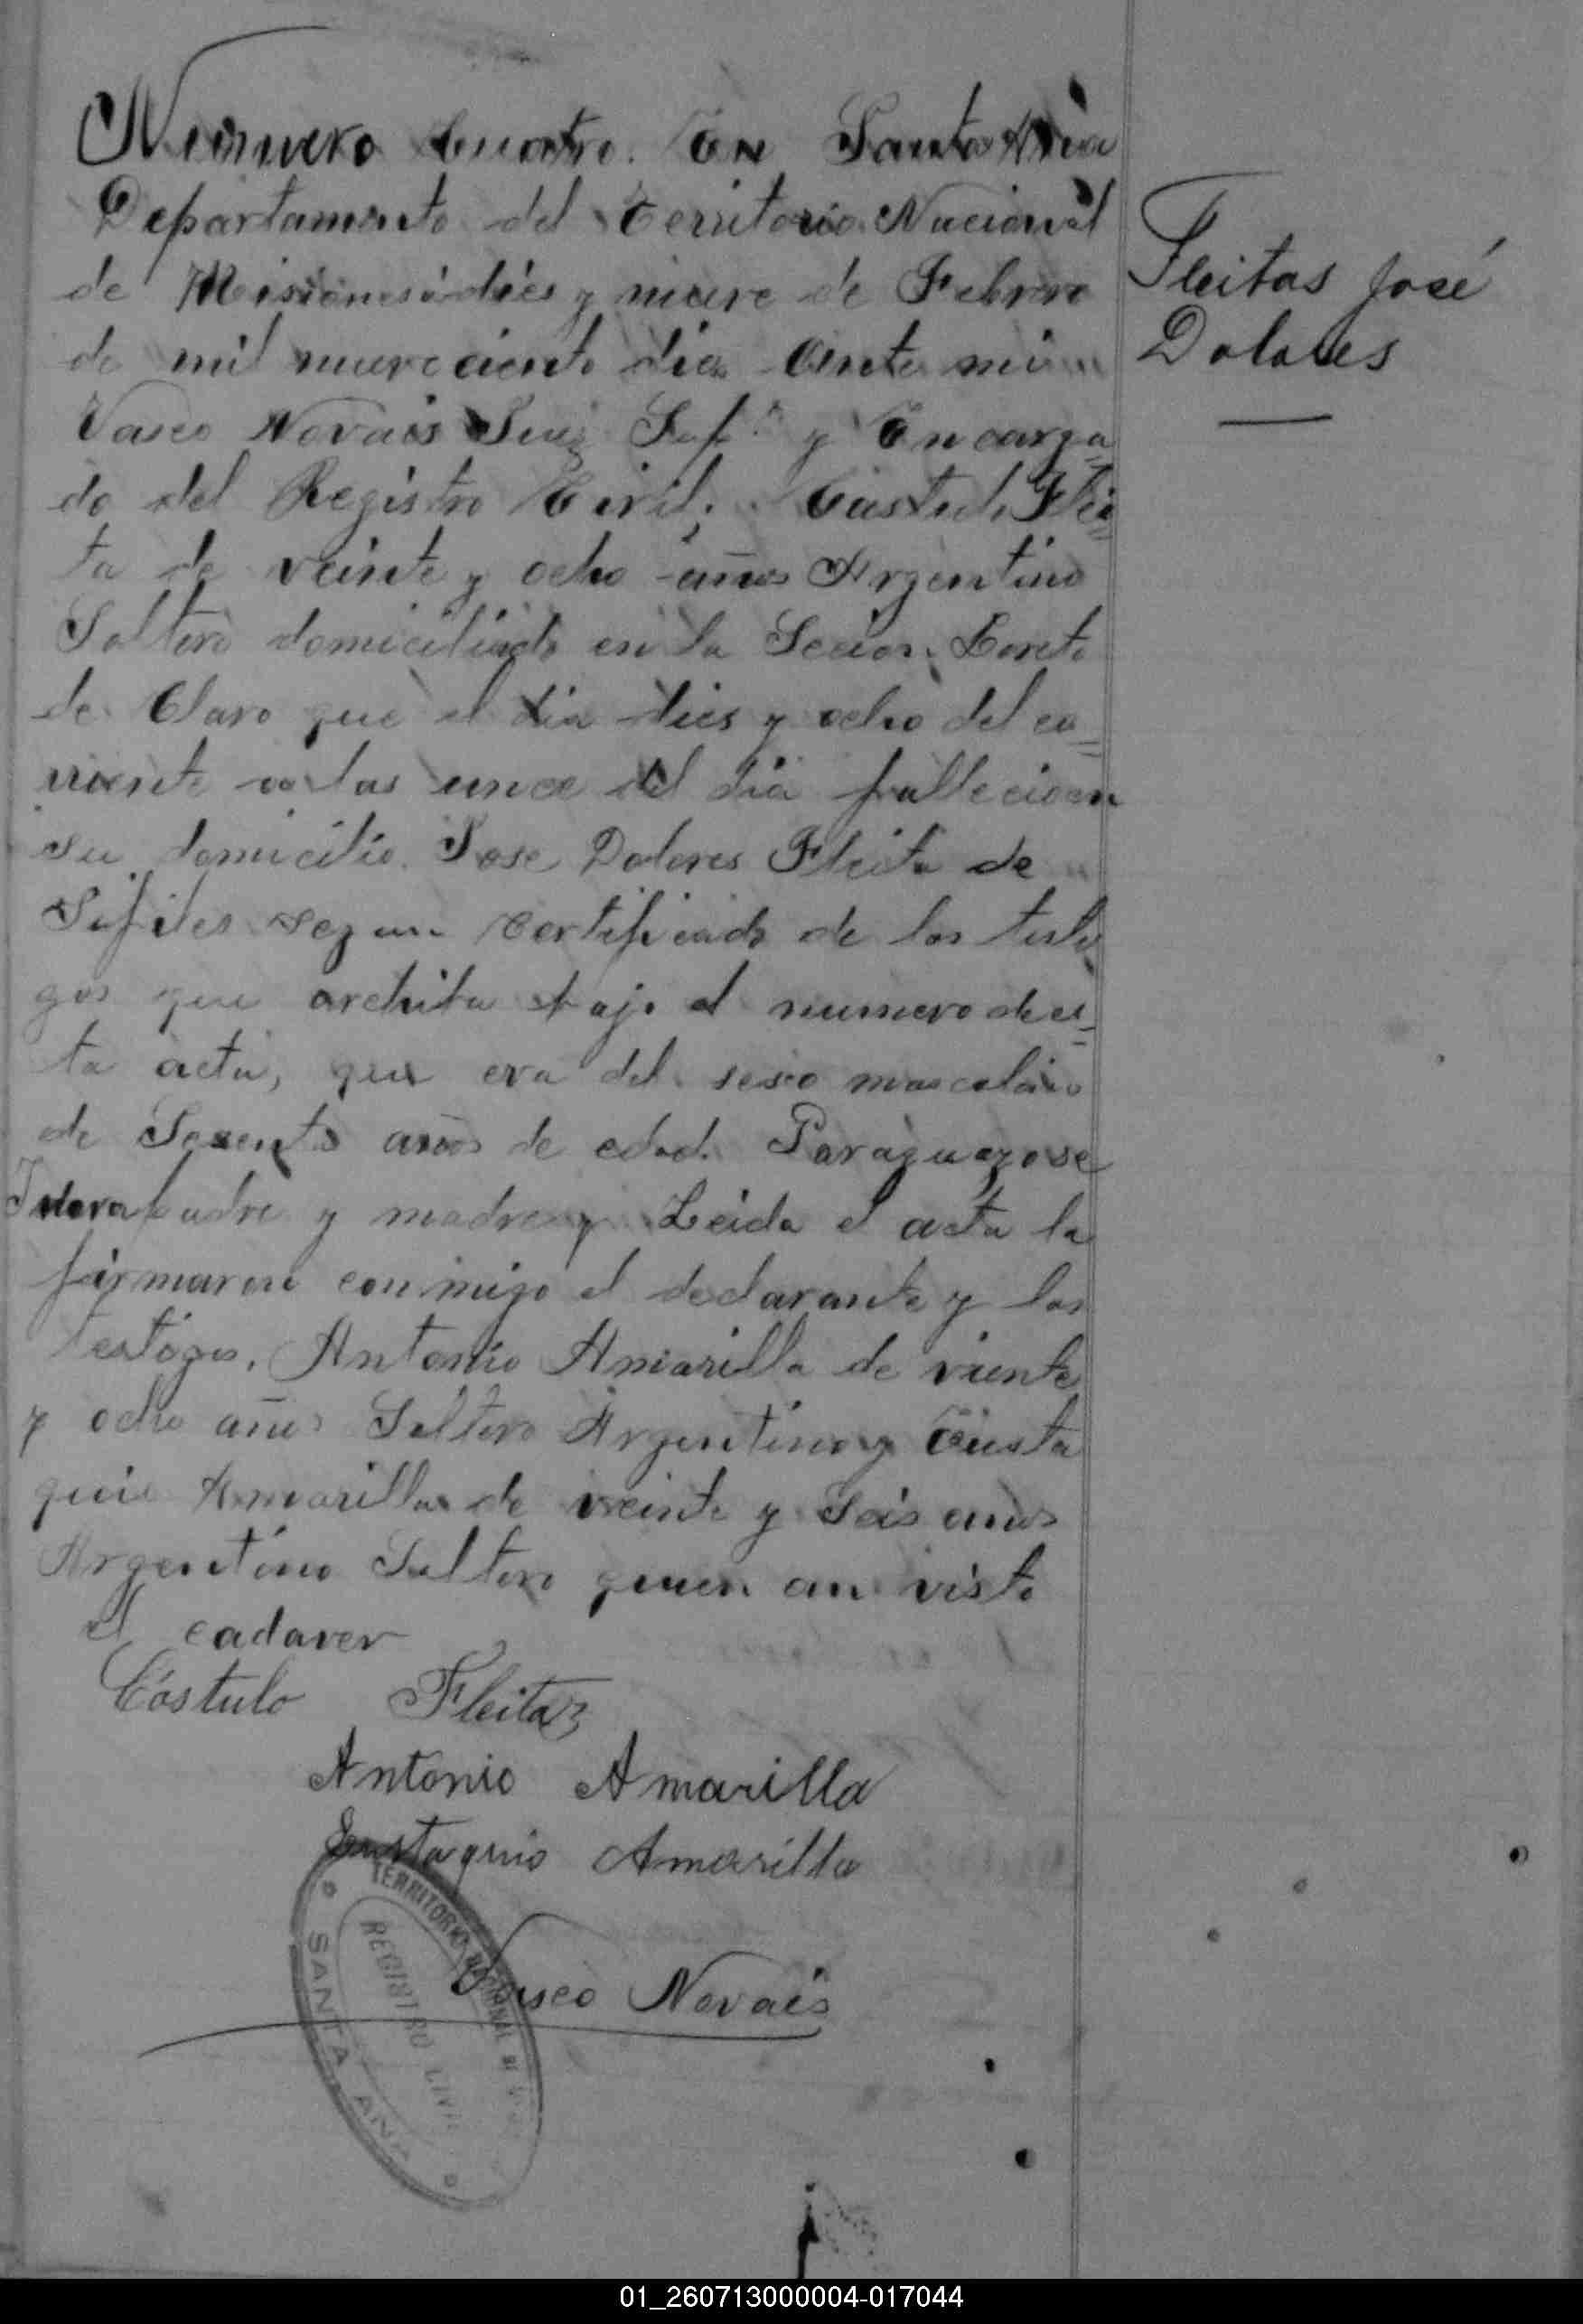 Numero Cuatro. En Santa Ana
Departamento del Territorio Nacional
de Misiones á dies y nueve de Febrero
de mil nueveciento dies Ante mi
Vasco Novais Juez y Encarga
do del Registro Civil; Castulo Flei
ta de veinte y ocho años Argentino
Soltero domiciliado en la Secion Loreto
de Claro que el dia dies y ocho del co
rriente a las once del dia fallecio en
su domicilio Jose Dolores Fleita de
Sifiles segun Certificado de los testi
gos que archiba bajo el numero de es
ta acta, que era del sexo masculino
de Sesenta años de edad. Paraguayo se
Inora padre y madre y Leida el acta la
firmaron conmigo el declarante y los
testigos, Antonio Amarilla de viente
y ocho años Soltero Argentino y Eusta
quio Amarilla de veinte y Seis anos
Argentino Soltero quien an visto
el cadaver
Cástulo Fleitaz
Antonio Amarilla
Eustaquio Amarilla
Vasco Novais
TERRITORIO NACIONAL DE
REGISTRO CIVIL
SANTA ANA
Fleitas José
Dolores
01_260713000004-017044